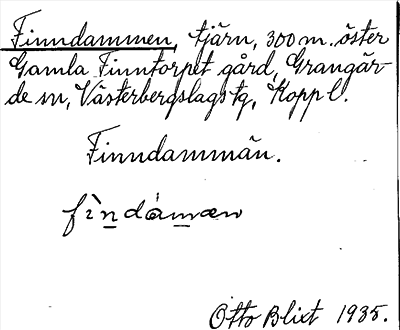 Finndammen, tjärn, 300 m. öster
Gamla Finntorpet gård, Grangär-
de sn, Västerbergslags tg, Kopp l.
Finndammän.
Otto Blixt 1935.